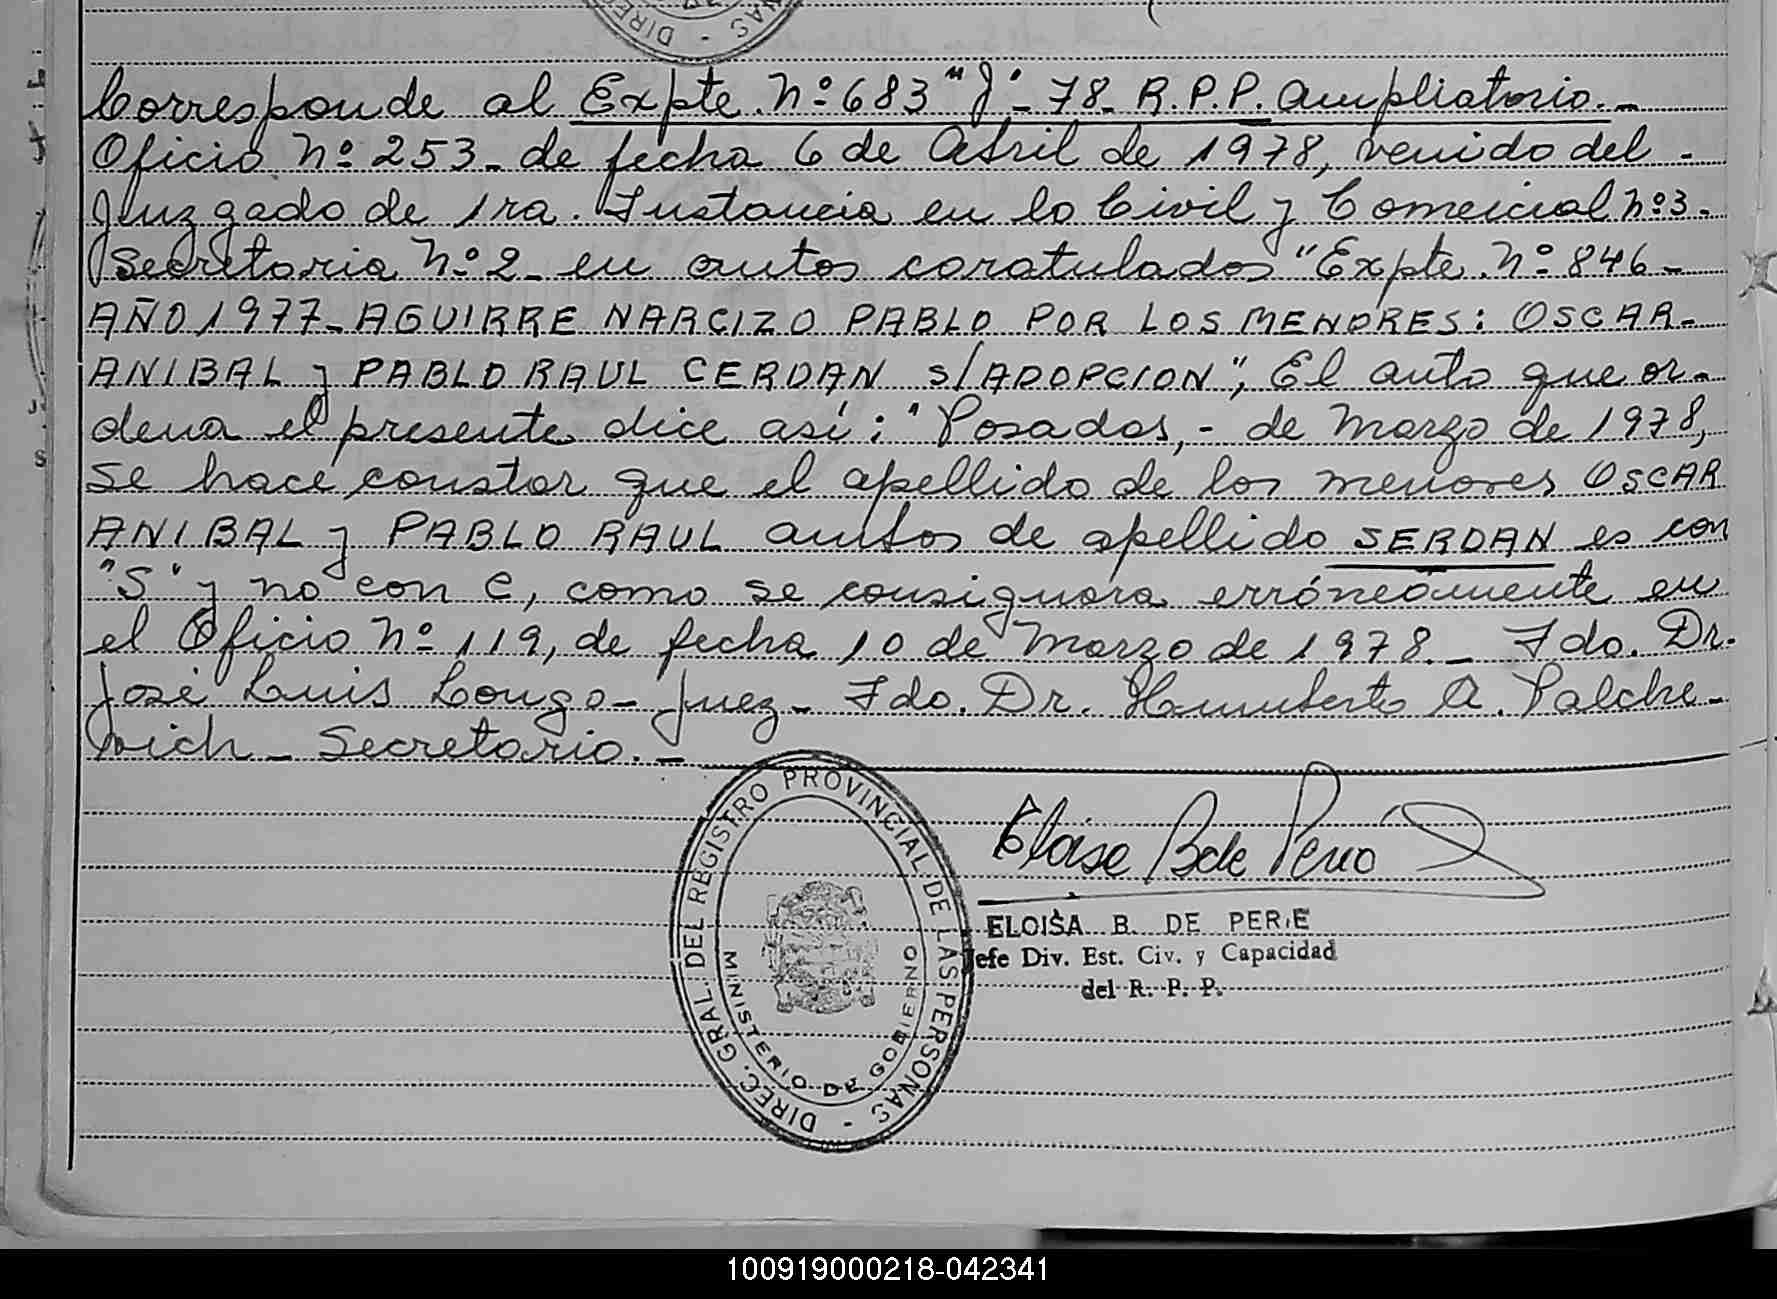 Corresponde al Expte. Nº 683 "J" - 78 - R.P.P. Ampliatorio.-
Oficio Nº 253 - de fecha 6 de Abril de 1978, venido del -
Juzgado de 1ra. Instancia en lo Civil y Comercial Nº 3 -
Secretaria Nº 2 - en autos coratulados "Expte. Nº 846 -
AÑO 1977 - AGUIRRE NARCIZO PABLO POR LOS MENORES: OSCAR -
ANIBAL y PABLO RAUL CERDAN s/ADOPCION", El auto que or-
dena el presente dice así: "Posadas, - de Marzo de 1978,
se hace constar que el apellido de los menores OSCAR
ANIBAL y PABLO RAUL ambos de apellido SERDAN es con
"S" y no con C, como se consignara erróneamente en
el Oficio Nº 119, de fecha 10 de Marzo de 1978. - Fdo. Dr.
José Luis Longo - Juez - Fdo. Dr. Humberto A. Palche-
vich - Secretario. -
DIREC. GRAL. DEL REGISTRO PROVINCIAL DE LAS PERSONAS -
MINISTERIO DE GOBIERNO
Eloisa B de Perié
ELOISA B. DE PERIE
Jefe Div. Est. Civ. y Capacidad
del R. P. P.
100919000218-042341